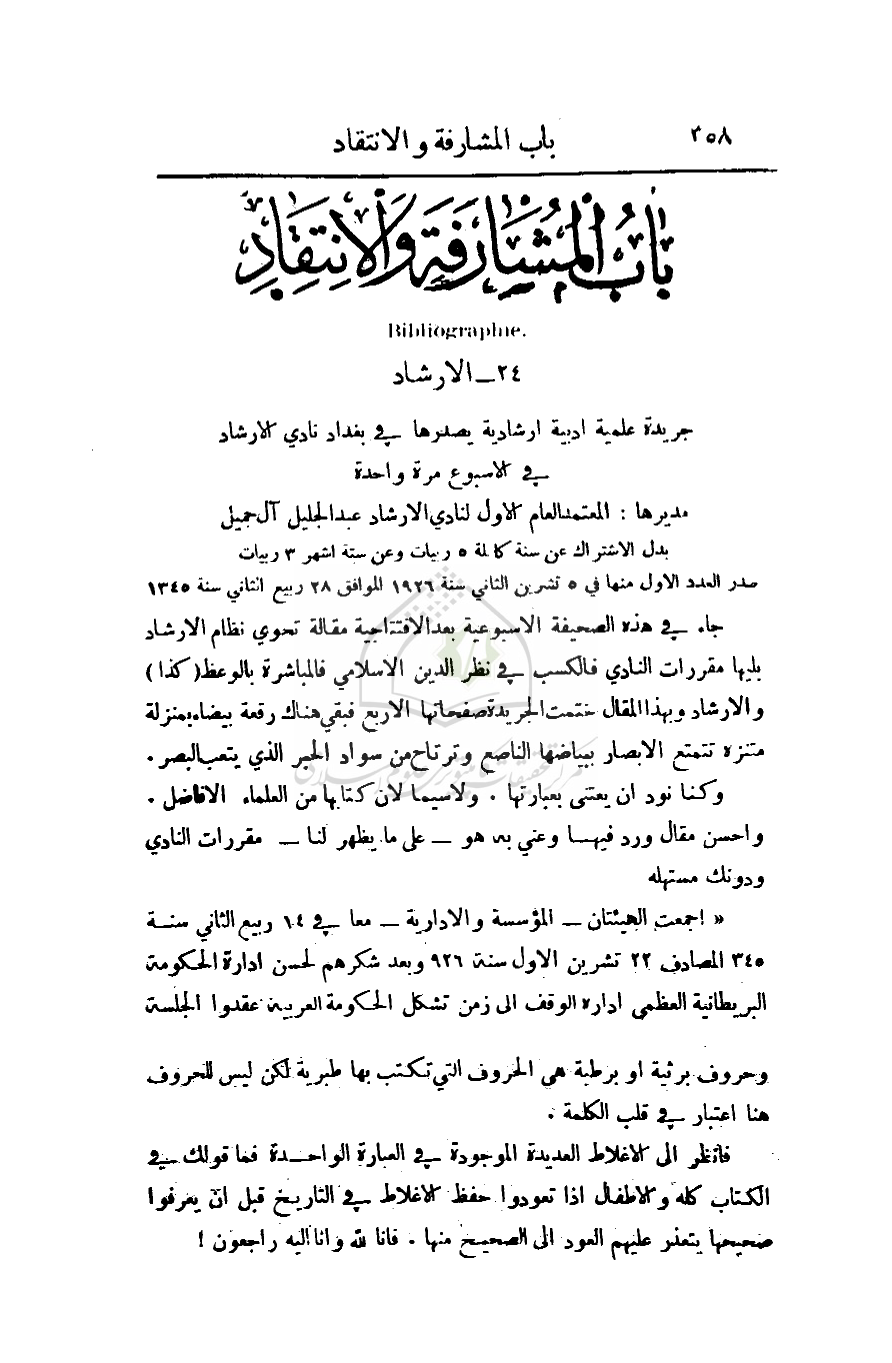 ٣٥٨ باب المشارفة والانتقاد
باب المشارفة والانتقاد
Bibliographie.
٢٤ــ الارشاد
جريدة علمية ادبية ارشادية يصدرها في بغداد نادي الارشاد
في الاسبوع مرة واحدة
مديرها : المعتمد العام الاول لنادي الارشاد عبد الجليل آل جميل
بدل الاشتراك عن سنة كاملة ٥ ربيات وعن ستة اشهر ٣ ربيات
صدر العدد الاول منها في ٥ تشرين الثاني سنة ١٩٢٦ الموافق ٢٨ ربيع الثاني سنة ١٣٤٥
جاء في هذه الصحيفة الاسبوعية بعد الافتتاحية مقالة تحوي نظام الارشاد
يليها مقررات النادي فالكسب في نظر الدين الاسلامي فالمباشرة بالوعظ (كذا)
والارشاد وبهذا المقال ختمت الجريدة صفحاتها الاربع فبقي هناك رقعة بيضاء بمنزلة
متنزه تتمتع الابصار ببياضها الناصع وترتاح من سواد الحبر الذي يتعب البصر .
وكنا نود ان يعتنى بعبارتها . ولاسيما لان كتابها من العلماء الافاضل .
واحسن مقال ورد فيها وعني به هو ــ على ما يظهر لنا ــ مقررات النادي
ودونك مستهله
« اجمعت الهيئتان ــ المؤسسة والادارية ــ معا في ١٤ ربيع الثاني سنة
٣٤٥ المصادف ٢٢ تشرين الاول سنة ٩٢٦ وبعد شكرهم لحسن ادارة الحكومة
البريطانية العظمى اداره الوقف الى زمن تشكل الحكومة العربية عقدوا الجلسة
وحروف برثية او برطبة هي الحروف التي تكتب بها طبرية لكن ليس للحروف
هنا اعتبار في قلب الكلمة .
فانظر الى الاغلاط العديدة الموجودة في العبارة الواحدة فما قولك في
الكتاب كله والاطفال اذا تعودوا حفظ الاغلاط في التاريخ قبل ان يعرفوا
صحيحها يتعذر عليهم العود الى الصحيح منها . فانا لله وانا اليه راجعون !